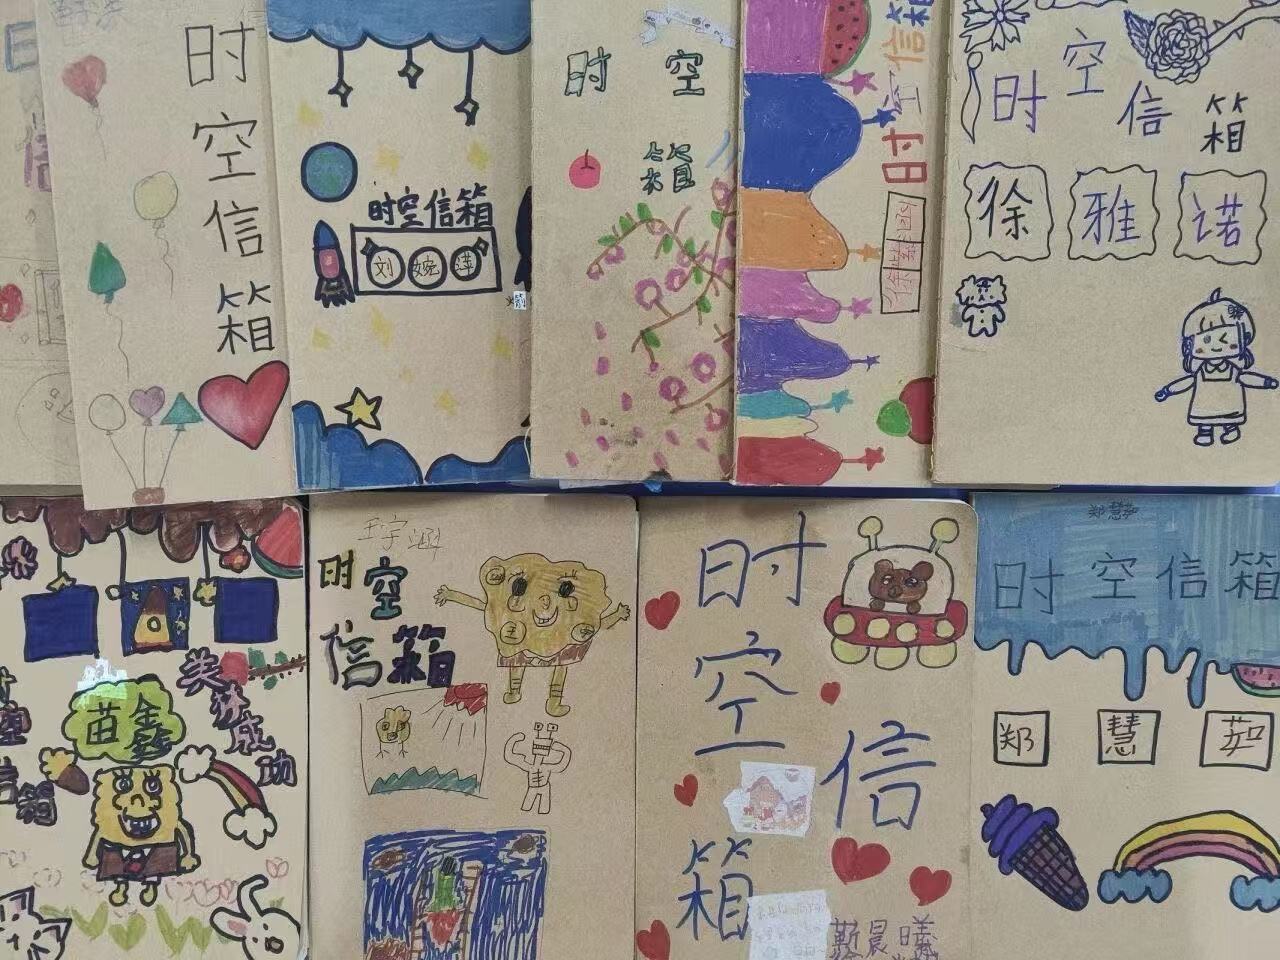 时空信箱
时空信箱
刘婉萍
时空
箱
时空信箱
时空信箱
徐雅诺
苗鑫
美梦成功
时空信箱
王宇涵
时空
信箱
王
时空信箱
靳晨曦
郑慧茹
时空信箱
郑慧茹